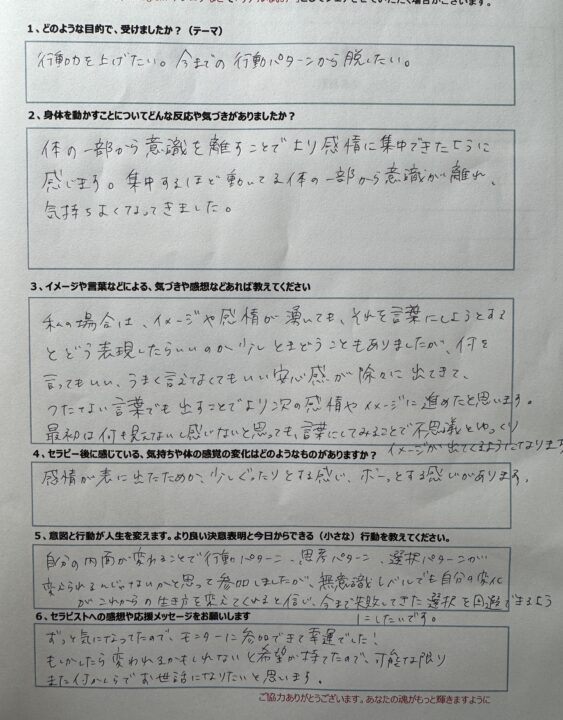 させていただく場合がございます。
1、どのような目的で、受けましたか？（テーマ）
行動力を上げたい。今までの行動パターンから脱したい。
2、身体を動かすことについてどんな反応や気づきがありましたか？
体の一部から意識を離すことでより感情に集中できたように
感じます。集中するほど動いてる体の一部から意識が離れ、
気持ちよくなってきました。
3、イメージや言葉などによる、気づきや感想などあれば教えてください
私の場合は、イメージや感情が湧いても、それを言葉にしようとする
とどう表現したらいいのか少しとまどうこともありましたが、何を
言ってもいい、うまく言えなくてもいい安心感が除々に出てきて、
つたない言葉でも出すことでより次の感情やイメージに進めたと思います。
最初は何も見えないし感じないと思っても、言葉にしてみることで不思議とゆっくり
イメージが出てくるようになりました
4、セラピー後に感じている、気持ちや体の感覚の変化はどのようなものがありますか？
感情が表に出たためか、少しぐったりとする感じ、ボーっとする感じがあります。
5、意図と行動が人生を変えます。より良い決意表明と今日からできる（小さな）行動を教えてください。
自分の内面が変わることで行動パターン、思考パターン、選択パターンが
変えられるんじゃないかと思って参加しましたが、無意識レベルでも自分の変化
がこれからの生き方を変えてくれると信じ、今まで失敗してきた選択を回避できるよう
にしたいです。
6、セラピストへの感想や応援メッセージをお願いします
ずっと気になってたので、モニターに参加できて幸運でした！
もしかしたら変われるかもしれないと希望が持てたので、可能な限り
また何かしらでお世話になりたいと思います。
ご協力ありがとうございます。あなたの魂がもっと輝きますように